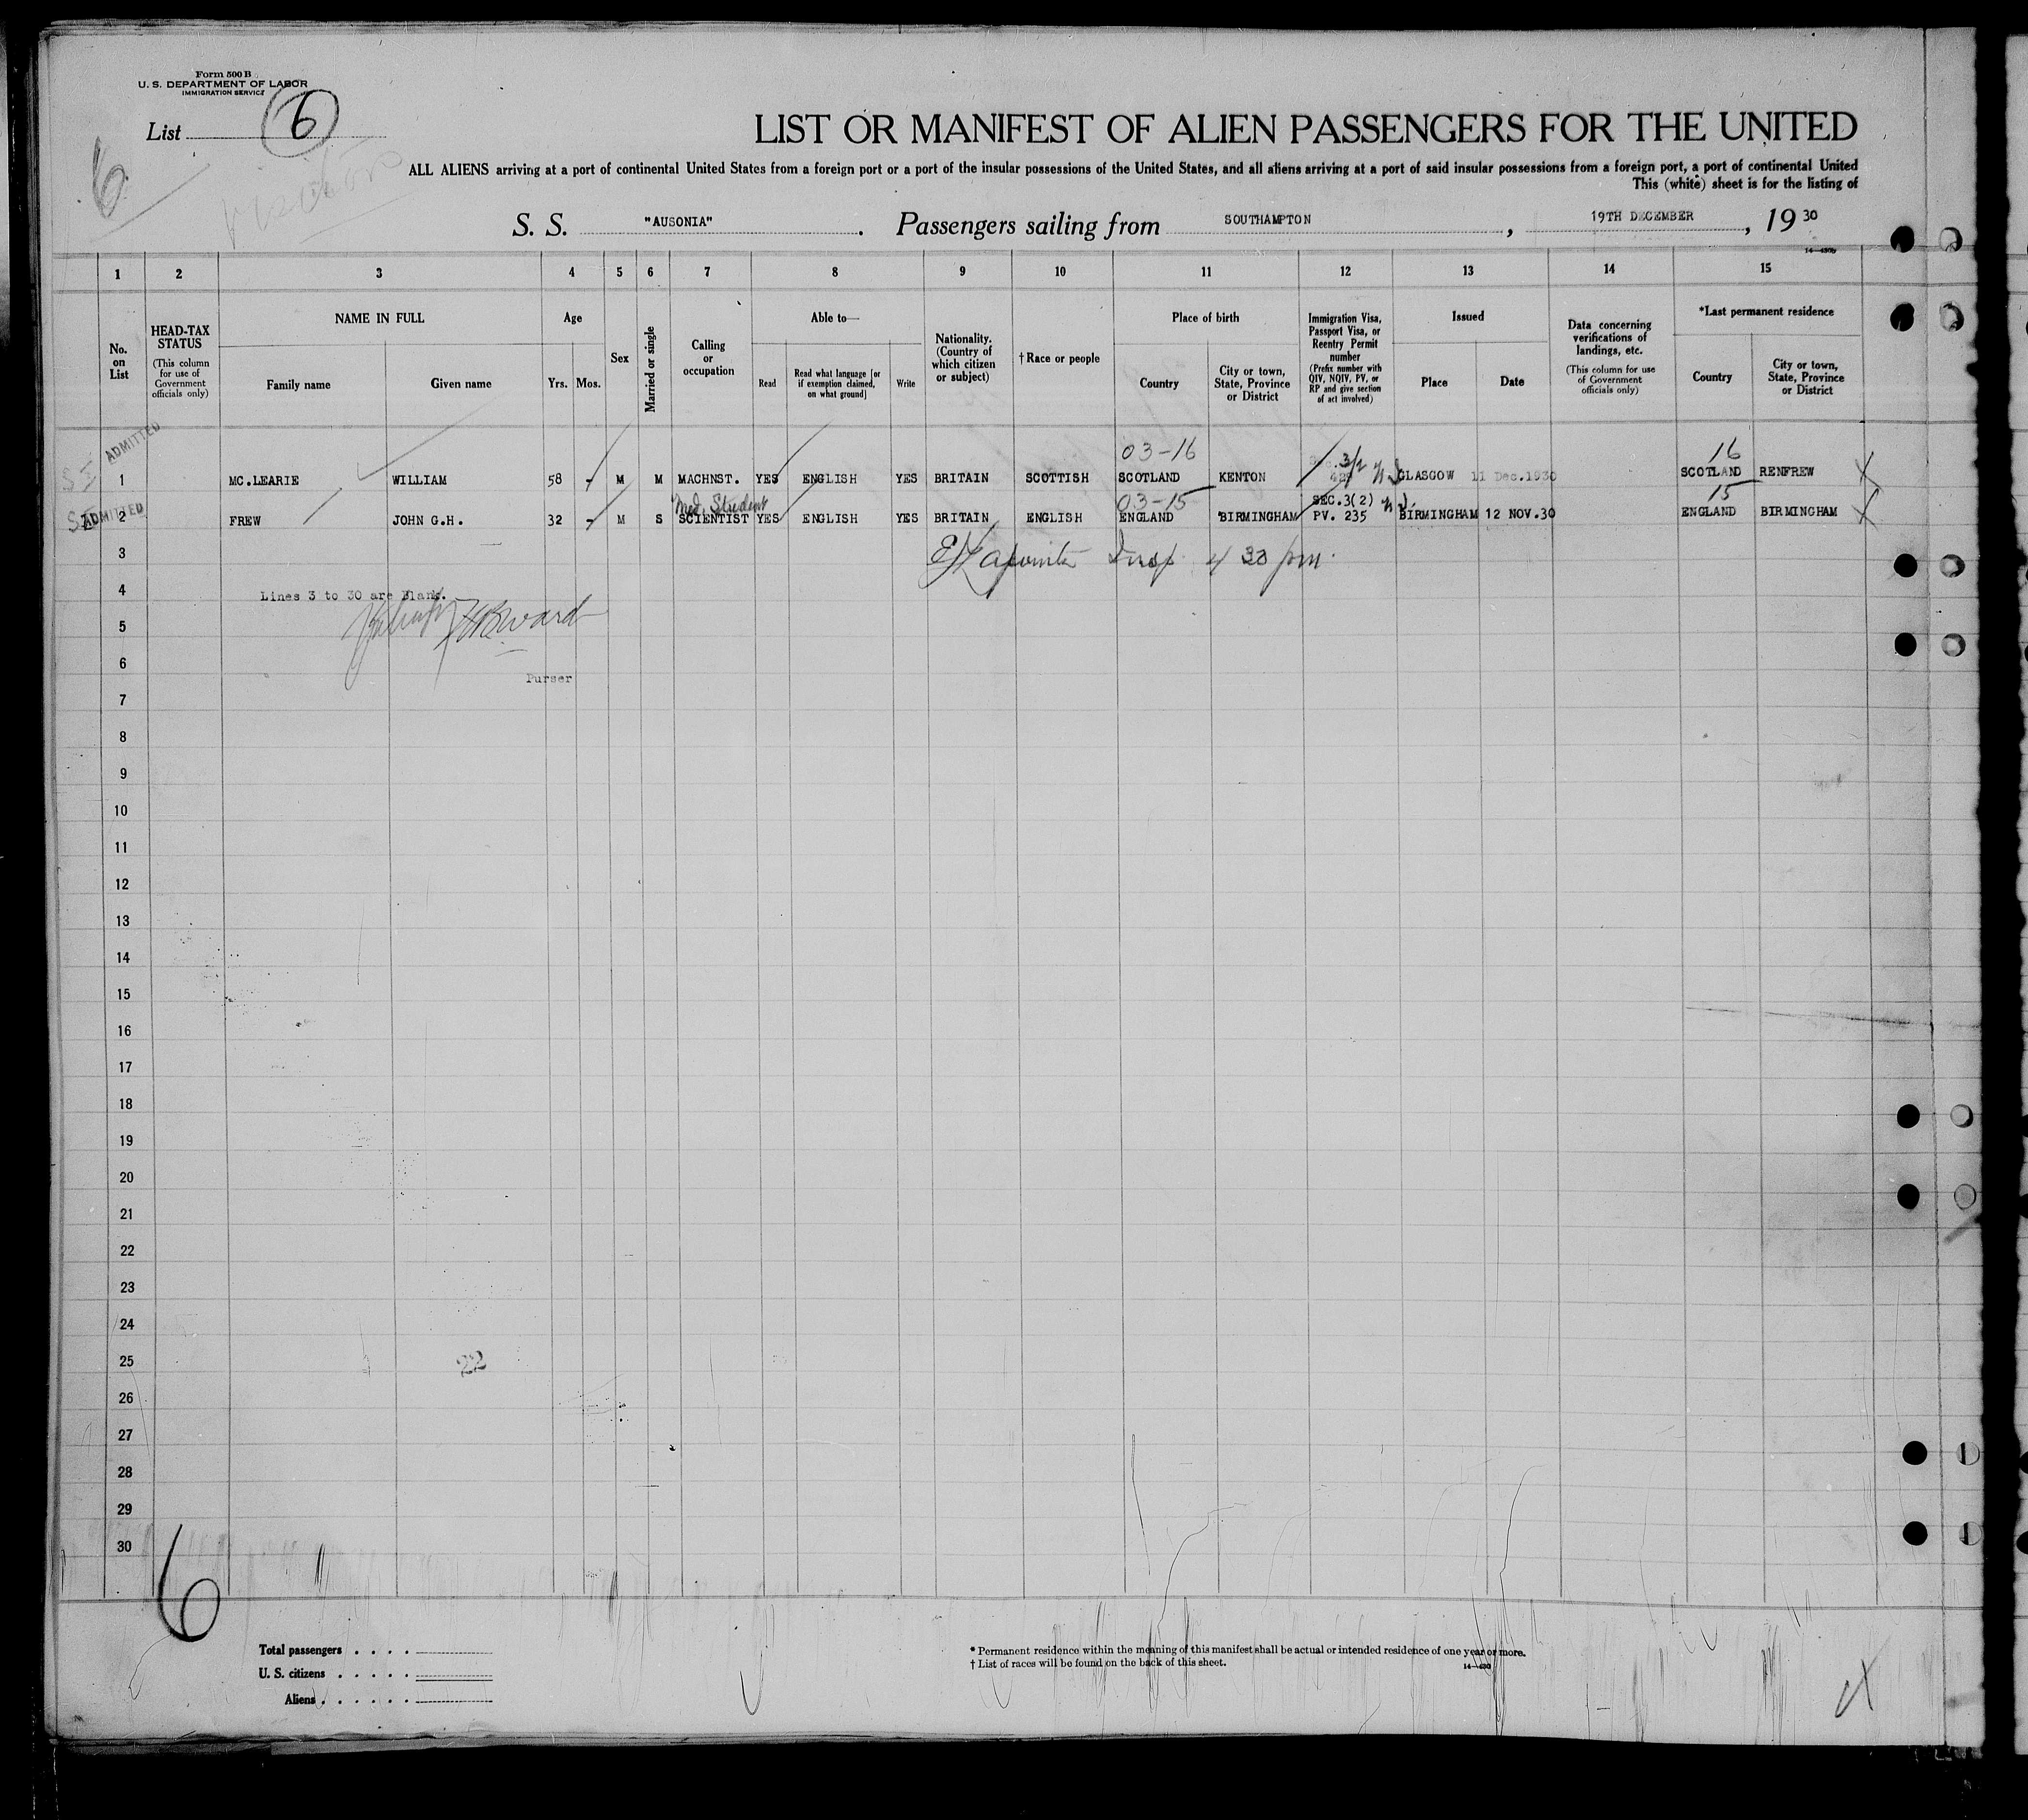 Form 500 B
U. S. DEPARTMENT OF LABOR
IMMIGRATION SERVICE
List 6
6
LIST OR MANIFEST OF ALIEN PASSENGERS FOR THE UNITED
ALL ALIENS arriving at a port of continental United States from a foreign port or a port of the insular possessions of the United States, and all aliens arriving at a port of said insular possessions from a foreign port, a port of continental United
This (white) sheet is for the listing of
S. S. "AUSONIA". Passengers sailing from SOUTHAMPTON, 19TH DECEMBER, 1930
1 2 3 4 5 6 7 8 9 10 11 12 13 14 15
No. on List
HEAD-TAX STATUS
(This column for use of Government officials only)
NAME IN FULL
Family name
Given name
Age
Yrs. Mos.
Sex
Married or single
Calling or occupation
Able to—
Read
Read what language [or if exemption claimed, on what ground]
Write
Nationality. (Country of which citizen or subject)
†Race or people
Place of birth
Country
City or town, State, Province or District
Immigration Visa, Passport Visa, or Reentry Permit number
(Prefix number with QIV, NQIV, PV, or RP and give section of act involved)
Issued
Place
Date
Data concerning verifications of landings, etc.
(This column for use of Government officials only)
*Last permanent residence
Country
City or town, State, Province or District
ADMITTED 03-16 3/2 16
1 MC.LEARIE WILLIAM 58 - M M MACHNST. YES ENGLISH YES BRITAIN SCOTTISH SCOTLAND KENTON GLASGOW 11 Dec.1930 SCOTLAND RENFREW
ADMITTED Med. Student 03-15 SEC.3(2) 15
2 FREW JOHN G.H. 32 - M S SCIENTIST YES ENGLISH YES BRITAIN ENGLISH ENGLAND BIRMINGHAM PV. 235 BIRMINGHAM 12 NOV.30 ENGLAND BIRMINGHAM
3 Lapointe Insp 4 30 pm.
4 Lines 3 to 30 are Blank.
5
6
Purser
7
8
9
10
11
12
13
14
15
16
17
18
19
20
21
22
23
24
25 22
26
27
28
29
30
6
Total passengers . . . .
U. S. citizens . . . . .
Aliens . . . . . .
* Permanent residence within the meaning of this manifest shall be actual or intended residence of one year or more.
† List of races will be found on the back of this sheet.